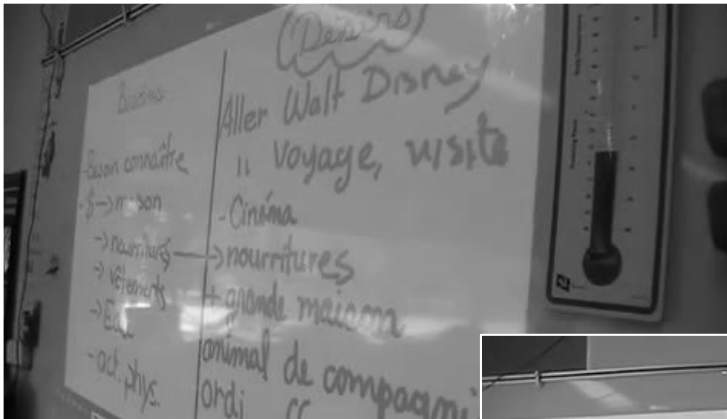 Besoins
- Besoin connaître
- $ → maison
→ nourritures
→ vêtements
→ Eau
- act. phys.
Désirs
Aller Walt Disney
" voyage, visite
- Cinéma
→ nourritures
+ grande maison
animal de compagni
ordi